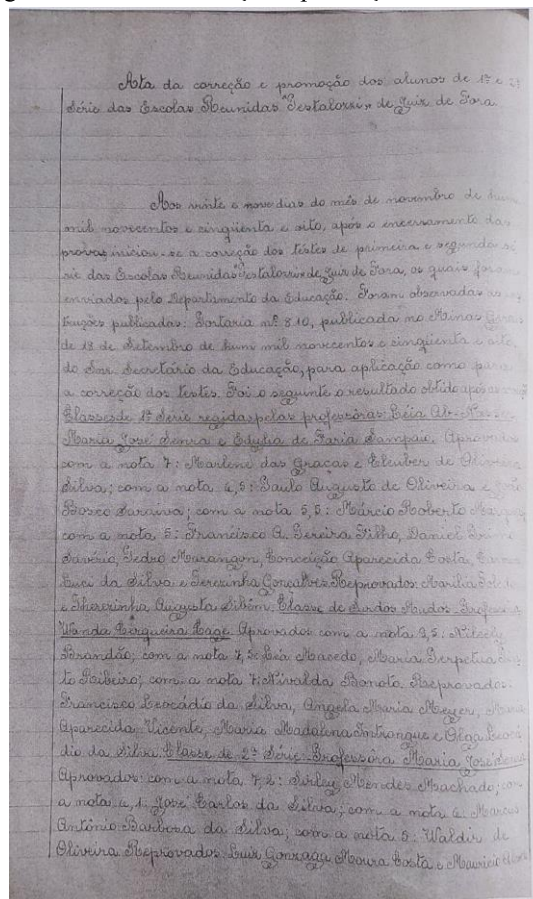 Ata da correção e promoção dos alunos de 1ª e 2ª
Série das Escolas Reunidas "Pestalozzi" de Juiz de Fora
Aos vinte e nove dias do mês de novembro de hum
mil novecentos e cinqüenta e oito, após o encerramento das
provas iniciou-se a correção dos têstes de primeira e segunda sé
rie das Escolas Reunidas "Pestalozzi" de Juiz de Fora, os quais foram
enviados pelo Departamento da Educação. Foram observadas as ins
truções publicadas: Portaria nº 810, publicada no Minas Gerais
de 18 de Setembro de hum mil novecentos e cinqüenta e oito,
do Snr. Secretário da Educação, para aplicação como para
a correção dos testes. Foi o seguinte o resultado obtido após correção
Classes de 1ª Série regidas pelas professôras: Léia
Maria José Senra e de Faria Sampaio. Aprovados
com a nota 7: Marlene das Graças e Cleuber de Oliveira
Silva; com a nota 6,5: Paulo Augusto de Oliveira e João
Bosco Saraiva; com a nota 5,5: Márcio Roberto
com a nota 5: Francisco A. Pereira Filho, Daniel
Savério, Pedro Marangon, Conceição Aparecida Costa,
Luci da Silva e Terezinha Gonçalves Reprovados: Marilia
e Therezinha Augusta Classe de Surdos Mudos - Professôra
Wanda Cerqueira Lage. Aprovados com a nota
Brandão; com a nota 7,5: Léa Macedo, Maria Perpetua
Ribeiro; com a nota 7: Nivalda Bonoto Reprovados:
Francisco Leocádio da Silva, Angela Maria Meyer,
Aparecida Vicente, Maria Madalena e Olga Leocá
dio da Silva. Classe de 2ª Série - Professôra Maria José Senra
Aprovados: com a nota 7,2: Sirley Mendes Machado; com
a nota 6,1: José Carlos da Silva; com a nota 6: Marcos
Antônio Barbosa da Silva; com a nota 5: Waldir de
Oliveira Reprovados: Luiz Gonzaga Moura Costa e Mauricio